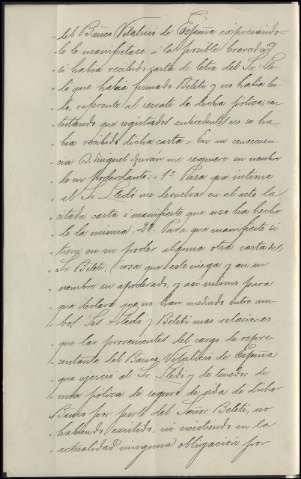 del Banco Vitalicio de España
le lo manifestase a la posible brevedad
si había recibido carta de letra del Sr. Sle
do que había firmado Beleti y no había
referente al rescate la dicha póliza
testando que registrados antecedentes no se ha
bía recibido dicha carta = En su consecuen
cia D. Miguel me requiere en nombre
de su Poderdante: 1º Para que intime
al Sr. Sledó me devuelva en el acto la
citada carta i manifieste que uso ha hecho
de la misma. 2º Para que manifieste si
tiene en su poder alguna otra carta del
Sr. Beleti, cosa que este niega y en su
nombre su apoderado, y así mismo para
que declare que no han mediado entre am
bos Sres Sledo y Beleti mas relaciones
que las provenientes del cargo de repre
sentante del Banco Vitalicio de España
que ejerció el Sr. Sledó y de tenedor de
una póliza de seguro de vida de dicho
Banco por parte del Señor Beleti, no
habiendo existido, ni existiendo en la
actualidad ninguna obligación por